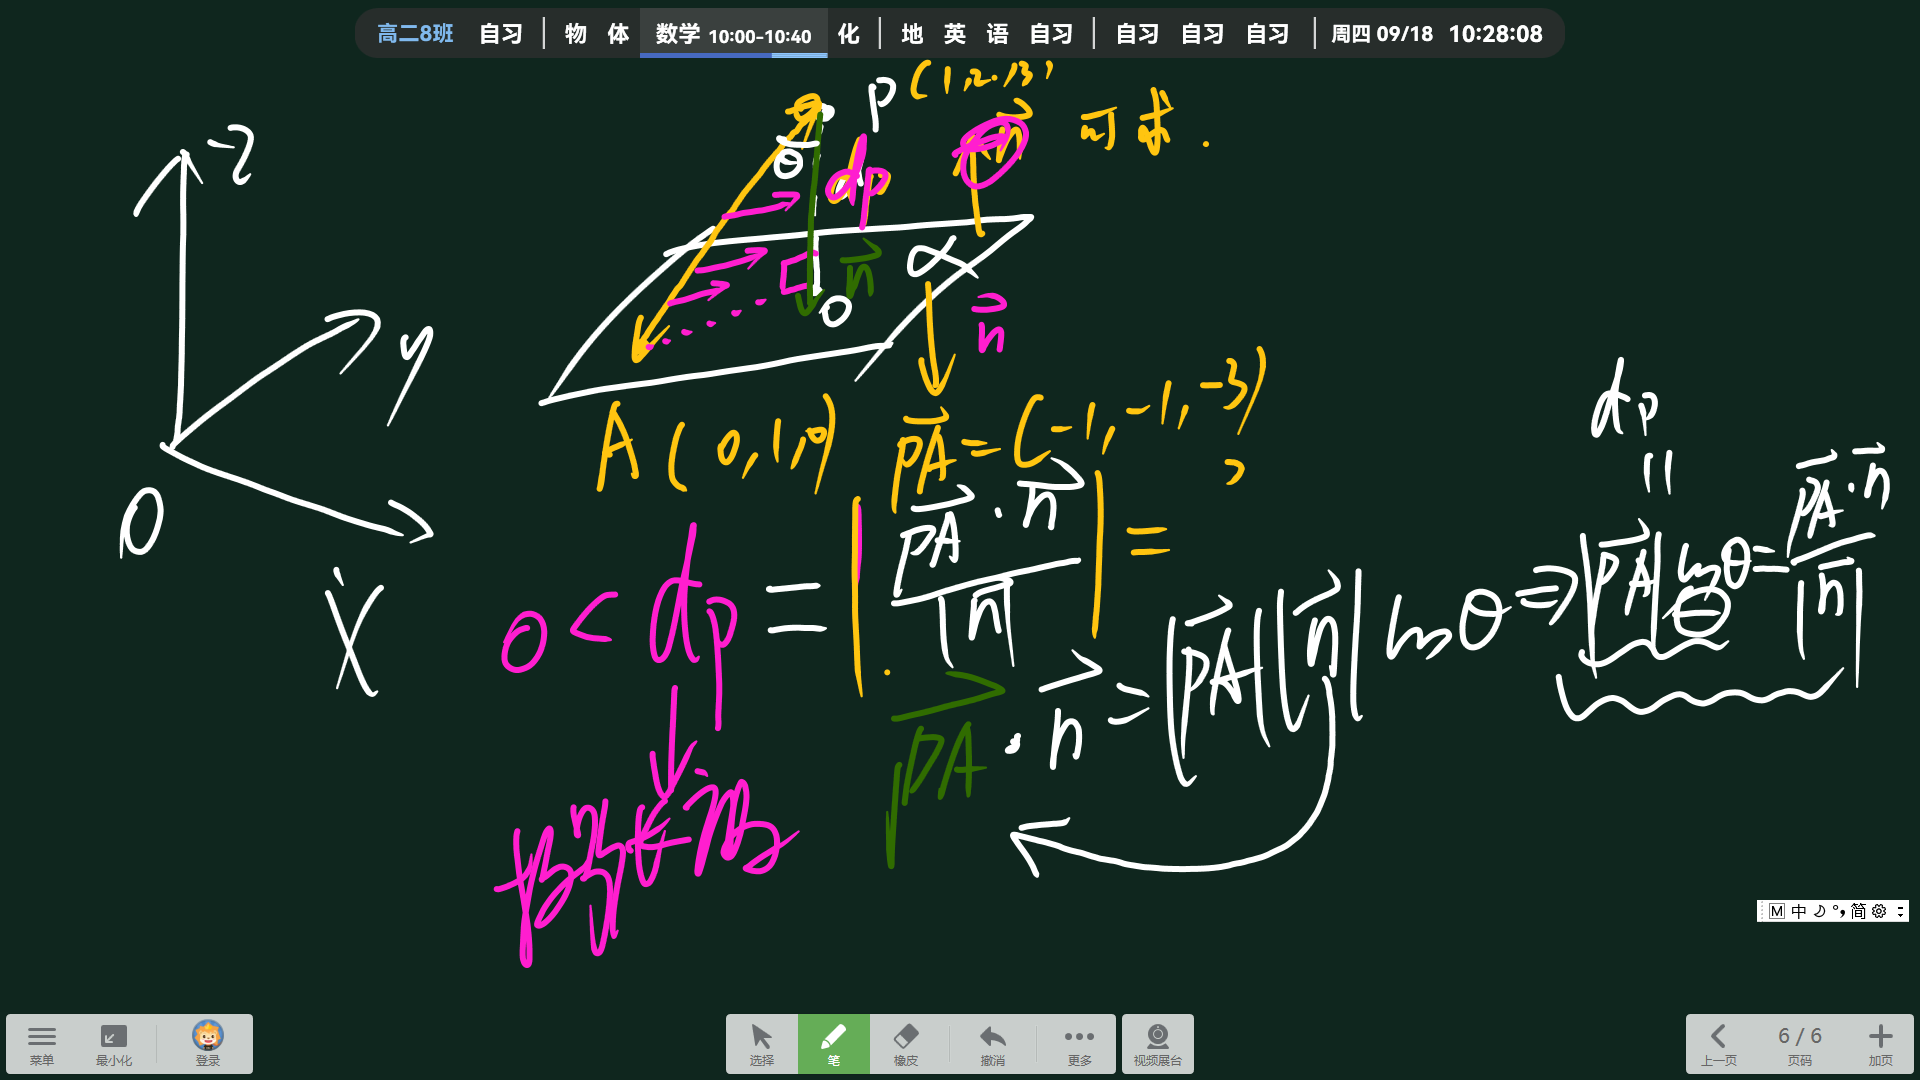 高二8班 自习 | 物 体 数学 10:00-10:40 化 | 地 英 语 自习 | 自习 自习 自习 | 周四 09/18 10:28:08
P (1,2,3)
z
θ
dp
n 可求.
y
n
α
O
n
A (0,1,0)
PA = (-1, -1, -3)
dp
=
O
x
0 < dp = |PA·n / |n|| =
PA·n = |PA||n|cosθ ⇒ |PA|cosθ = PA·n / |n|
M 中 简
菜单 最小化 登录 选择 笔 橡皮 撤消 更多 视频展台 上一页 6 / 6 页码 加页